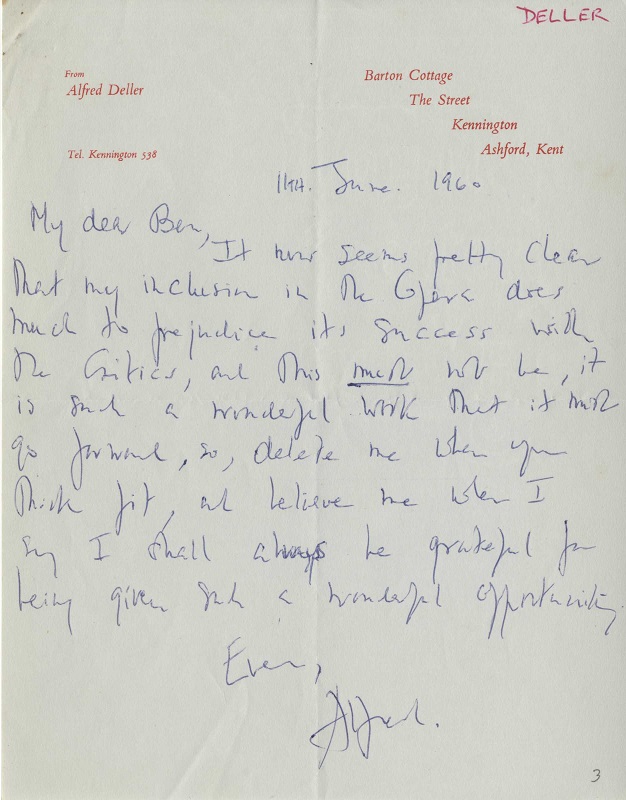 DELLER
From
Alfred Deller
Barton Cottage
The Street
Kennington
Ashford, Kent
Tel. Kennington 538
11th. June. 1960
My dear Ben,
It now seems pretty clear
that my inclusion in the Opera does
much to prejudice its success with
the Critics, and this must not be, it
is such a wonderful work that it must
go forward, so, delete me when you
think fit, and believe me when I
say I shall always be grateful for
being given such a wonderful opportunity.
Ever,
Alfred.
3